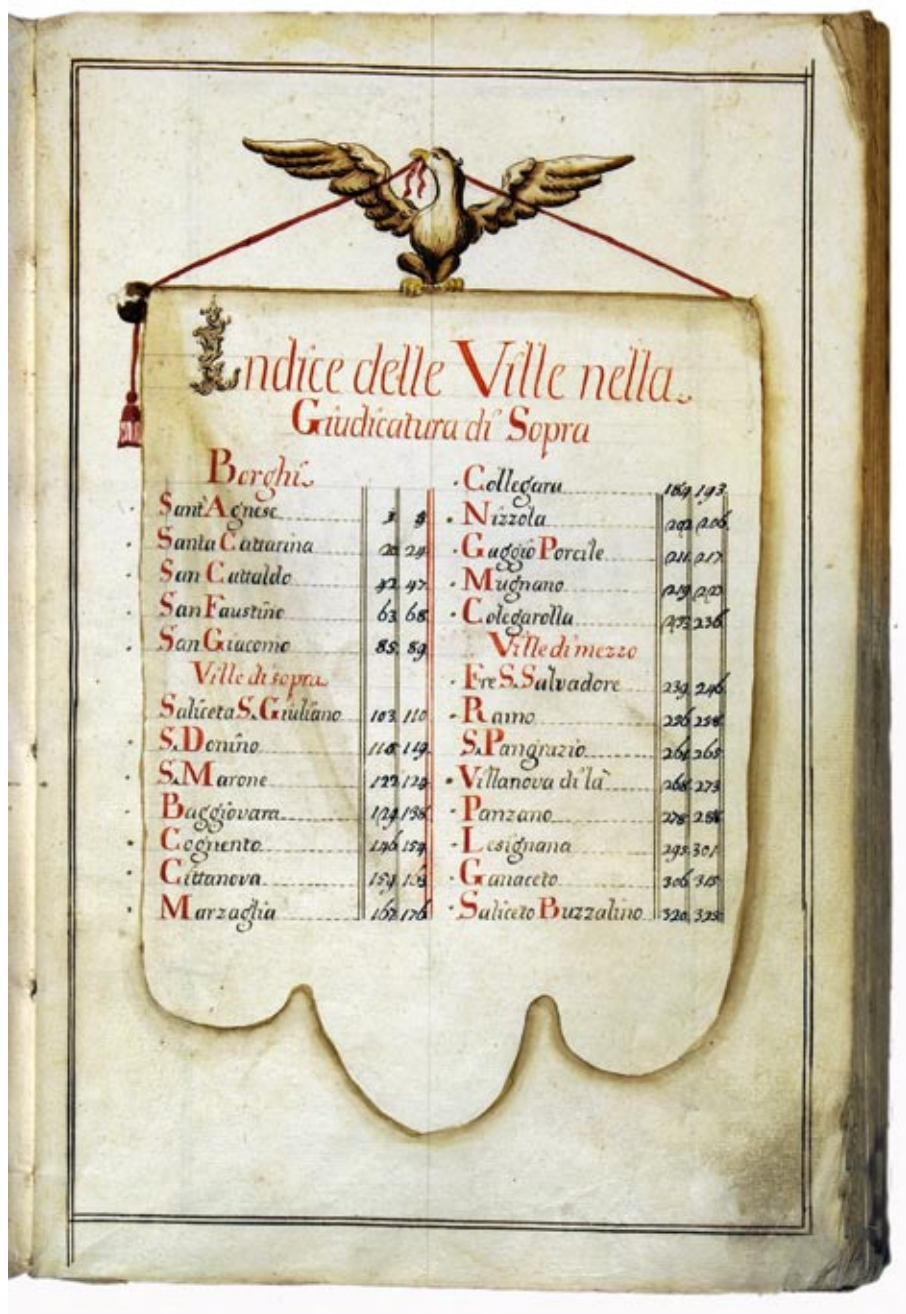 Indice delle Ville nella
Giudicatura di Sopra
Borghi
Sant'Agnese 3
Santa Cattarina 20 24
San Cattaldo 42 47
San Faustino 63 68
San Giacomo 85 89
Ville di sopra
Saliceta S. Giuliano 103 110
S. Donino 119
S. Marone 122
Baggiovara 129
Cognento 146
Cittanova
Marzaglia 176
Collegara 193
Nizzola 206
Gaggio Porcile 211 217
Mugnano 219
Colegarolla 236
Ville di mezzo
Fre S. Salvadore 239 246
Ramo 256 258
S. Pangrazio 261 265
Villanova di là 268 273
Panzano 278
Lesignana 295 301
Ganaceto 306 315
Saliceto Buzzalino 320 325